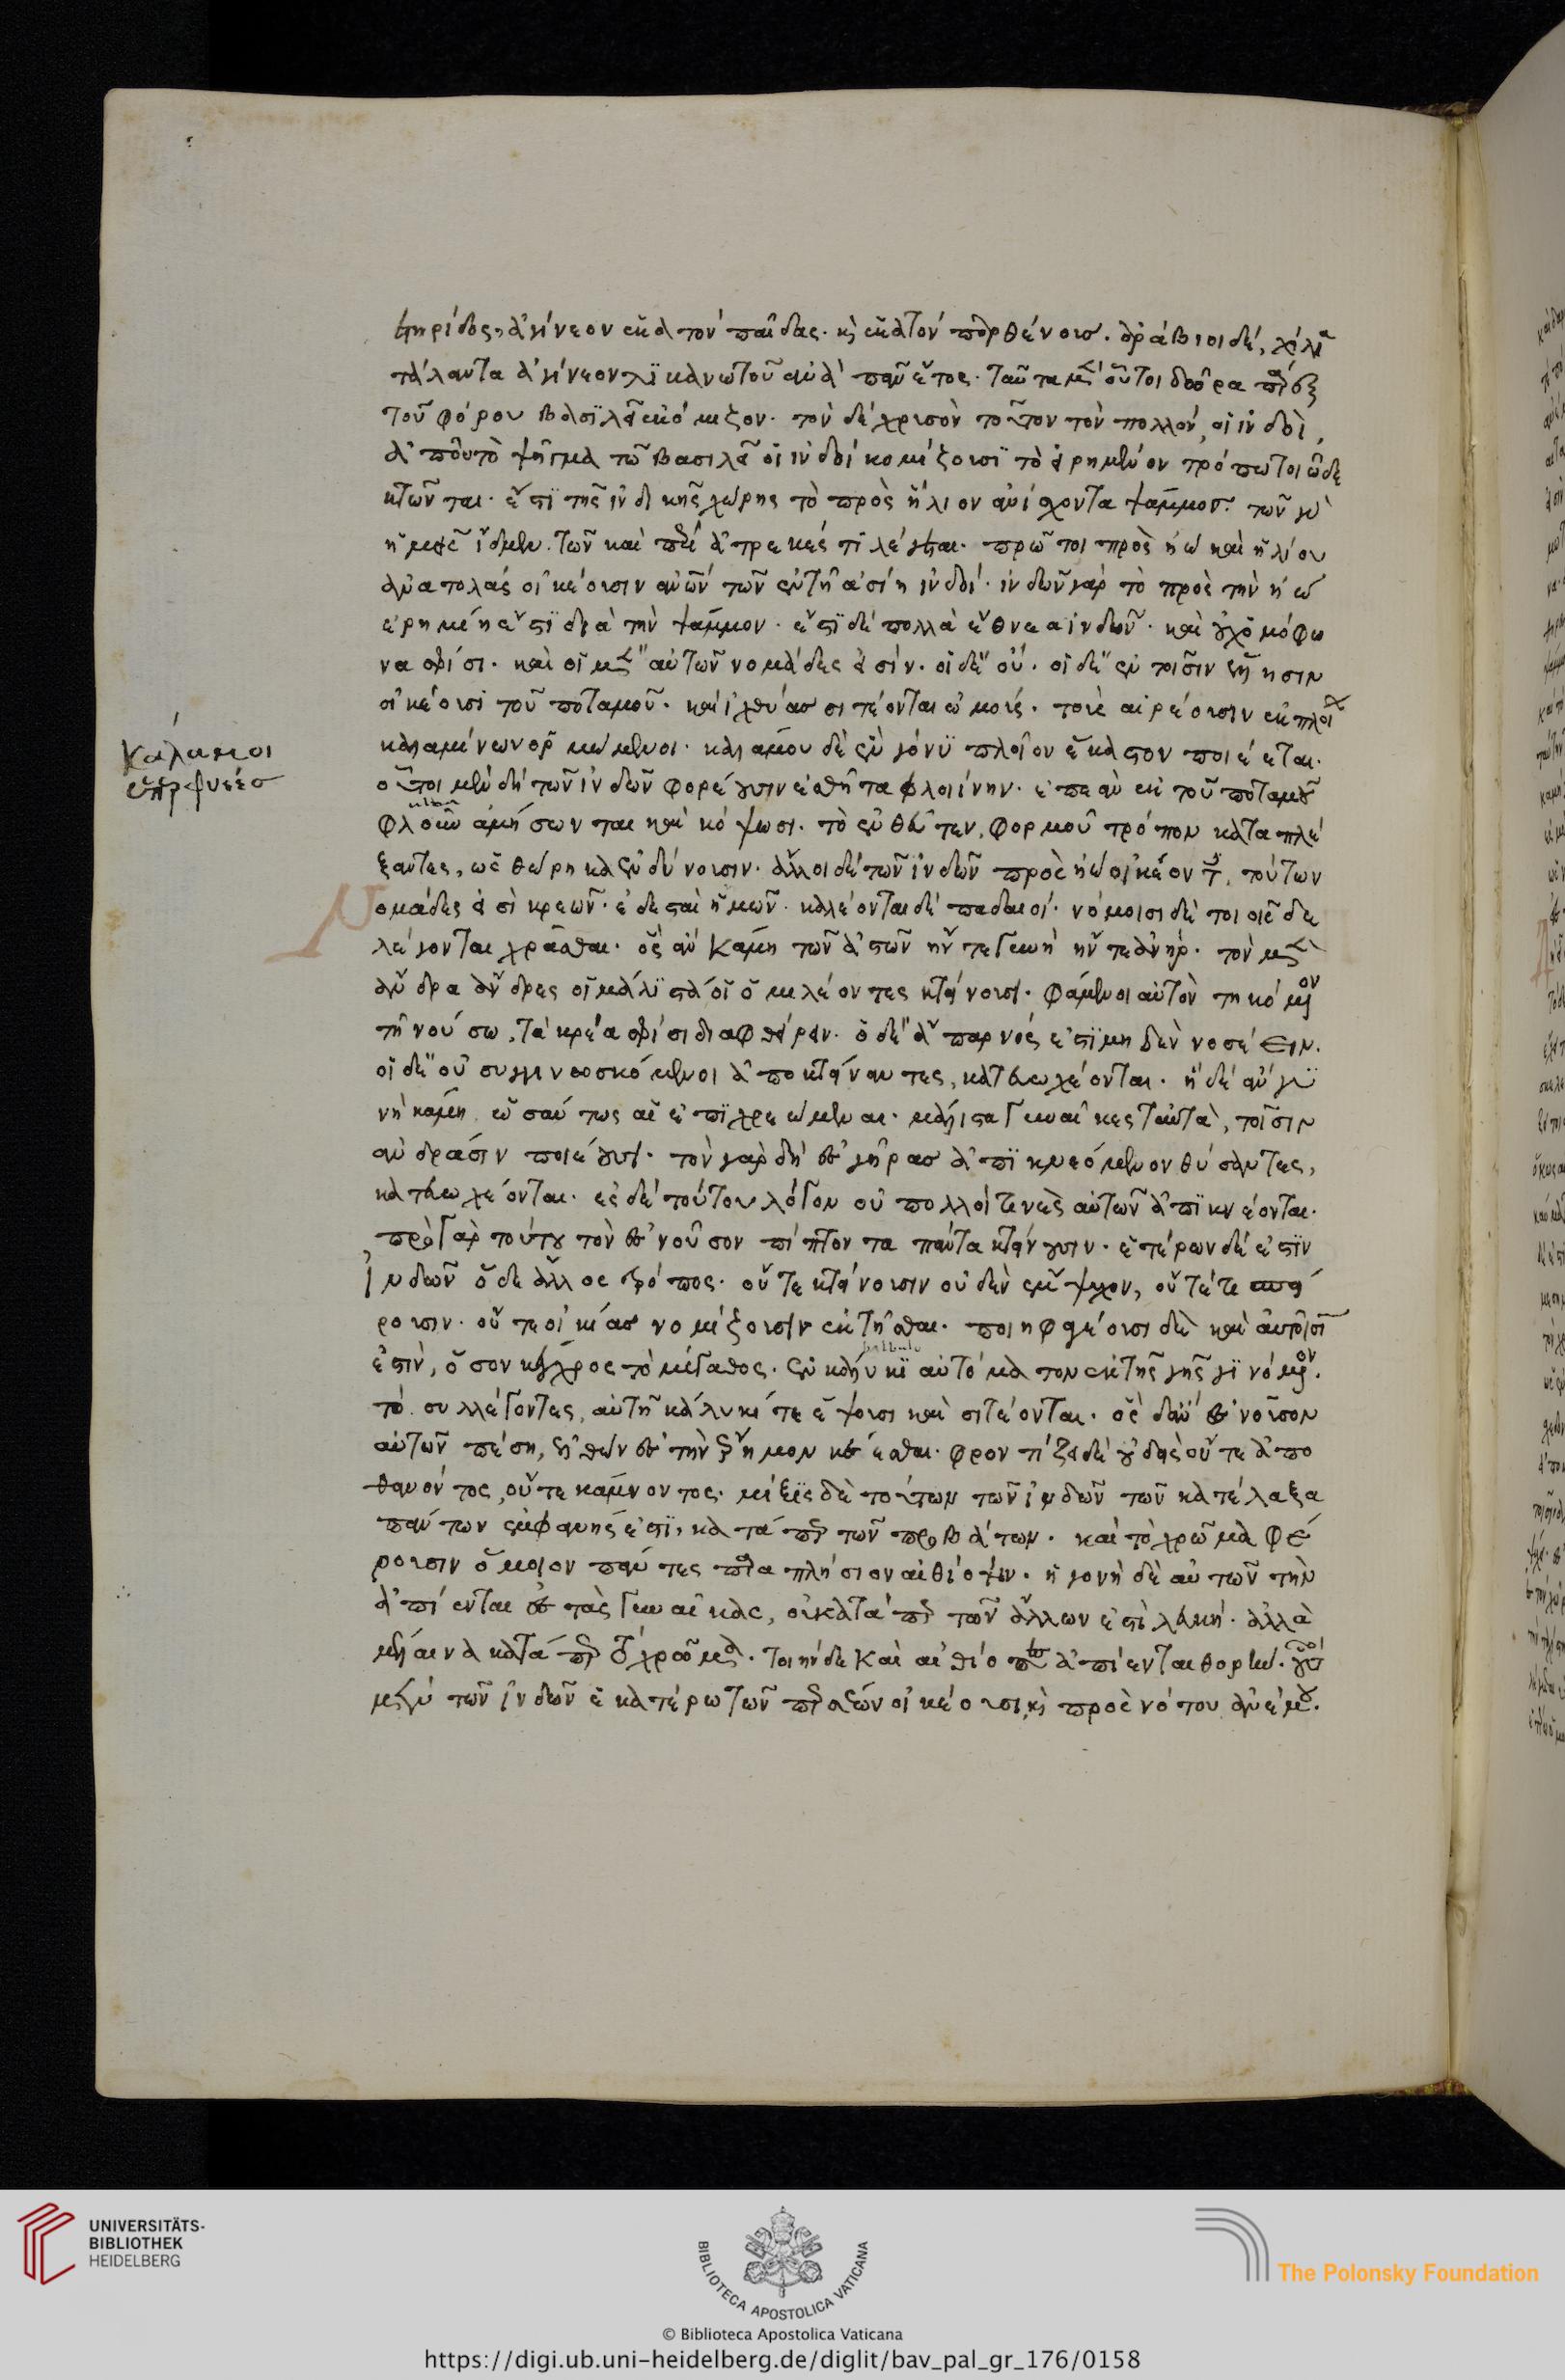 τηρίδος, ἀγίνεον ἑκατὸν παῖδας· καὶ ἑκατὸν παρθένους. ἀράβιοι δὲ, χίλια
τάλαντα ἀγίνεον λιβανωτοῦ ἀνὰ πᾶν ἔτος. ταῦτα μὲν οὗτοι δῶρα πάρεξ
τοῦ φόρου βασιλέϊ ἐκόμιζον. τὸν δὲ χρυσὸν τοῦτον τὸν πολλὸν, οἱ ἰνδοὶ,
ἀπ' οὗ τὸ ψῆγμα τῶ βασιλέϊ οἱ ἰνδοὶ κομίζουσι τὸ εἰρημένον τρόπω τοιῶδε
κτῶνται. ἔστι τῆς ἰνδικῆς χώρης τὸ πρὸς ἥλιον ἀνίσχοντα ψάμμος. τῶν γὰρ
ἡμεῖς ἴδμεν. τῶν καὶ πέρι ἀτρεκές τι λέγεται. πρῶτοι πρὸς ἠῶ καὶ ἡλίου
ἀνατολὰς οἰκέουσιν ἀνθρώπων τῶν ἐν τῆ ἀσίη ἰνδοί. ἰνδῶν γὰρ τὸ πρὸς τὴν ἠῶ
ἐρημίη ἐστὶ διὰ τὴν ψάμμον. ἔστι δὲ πολλὰ ἔθνεα ἰνδῶν. καὶ οὐχ ὁμόφω
να σφίσι. καὶ οἱ μὲν αὐτῶν νομάδες εἰσίν. οἱ δὲ οὔ. οἱ δὲ ἐν τοῖσιν ἕλησιν
οἰκέουσι τοῦ ποταμοῦ. καὶ ἰχθύας σιτέονται ὠμούς. τοὺς αἱρέουσιν ἐκ πλοίων
καλαμίνων ὁρμώμενοι. καλάμου δὲ ἓν γόνυ πλοῖον ἕκαστον ποιέεται.
οὗτοι μὲν δὴ τῶν ἰνδῶν φορέουσιν ἐσθῆτα φλοιίνην. ἐπεὰν ἐκ τοῦ ποταμοῦ
φλοῦν ἀμήσωνται καὶ κόψωσι. τὸ ἐνθεῦτεν, φορμοῦ τρόπον καταπλέ
ξαντες, ὡς θώρηκα ἐνδύνουσιν. ἄλλοι δὲ τῶν ἰνδῶν πρὸς ἠῶ οἰκέοντες, τούτων
Νομάδες εἰσὶ κρεῶν ἐδεσταὶ ὠμῶν. καλέονται δὲ παδαιοί. νόμοισι δὲ τοιοῖσδε
λέγονται χρᾶσθαι. ὃς ἂν κάμη τῶν ἀστῶν ἤν τε γυνὴ ἤν τε ἀνήρ. τὸν μὲν
ἄνδρα ἄνδρες οἱ μάλιστά οἱ ὁμιλέοντες κτείνουσι. φάμενοι αὐτὸν τηκόμενον
τῆ νούσω, τὰ κρέα σφίσι διαφθείρειν. ὁ δὲ ἄπαρνός ἐστι μηδὲν νοσέειν.
οἱ δὲ οὐ συγγινωσκόμενοι ἀποκτείναντες, κατευωχέονται. ἢ δὲ ἂν γυ
νὴ κάμη, ὡσαύτως αἱ ἐπιχρεώμεναι μάλιστα γυναῖκες ταὐτὰ, τοῖσιν
ἀνδράσιν ποιεῦσι. τὸν γὰρ δὴ ἐς γῆρας ἀπικνεόμενον θύσαντες,
κατευωχέονται. ἐς δὲ τούτου λόγον οὐ πολλοί τινες αὐτῶν ἀπικνέονται.
πρὸ γὰρ τούτου τὸν ἐς νοῦσον πίπτοντα πάντα κτείνουσιν. ἑτέρων δέ ἐστιν
Ἰνδῶν ὅδε ἄλλος τρόπος. οὔτε κτείνουσιν οὐδὲν ἔμψυχον, οὔτέ τι σπεί
ρουσιν. οὔτε οἰκίας νομίζουσιν ἐκτῆσθαι. ποιηφαγέουσι δὲ καὶ αὐτοῖσι
ἐστὶν, ὅσον κέγχρος τὸ μέγαθος. ἐν κάλυκι αὐτόματον ἐκ τῆς γῆς γινόμενον.
τὸ συλλέγοντες, αὐτῆ κάλυκί τε ἕψουσι καὶ σιτέονται. ὃς δ' ἂν ἐς νοῦσον
αὐτῶν πέση, ἐλθὼν ἐς τὴν ἔρημον κέεται. φροντίζει δὲ οὐδεὶς οὔτε ἀπο
θανόντος, οὔτε κάμνοντος. μίξις δὲ τούτων τῶν ἰνδῶν τῶν κατέλεξα
πάντων ἐμφανής ἐστι, κατάπερ τῶν προβάτων. καὶ τὸ χρῶμα φέ
ρουσιν ὅμοιον πάντες παραπλήσιον αἰθίοψιν. ἡ γονὴ δὲ αὐτῶν τὴν
ἀπίενται ἐς τὰς γυναῖκας, οὐ κατάπερ τῶν ἄλλων ἐστὶ λευκή. ἀλλὰ
μέλαινα κατάπερ τὸ χρῶμα. τοιήνδε καὶ αἰθίοπες ἀπίενται θορήν. οὗτοι
μὲν τῶν ἰνδῶν ἑκατέρω τῶν περσέων οἰκέουσι, καὶ πρὸς νότου ἀνέμου.
Κάλαμοι
ὑπερφυέες
UNIVERSITÄTS-
BIBLIOTHEK
HEIDELBERG
BIBLIOTECA APOSTOLICA VATICANA
The Polonsky Foundation
© Biblioteca Apostolica Vaticana
https://digi.ub.uni-heidelberg.de/diglit/bav_pal_gr_176/0158